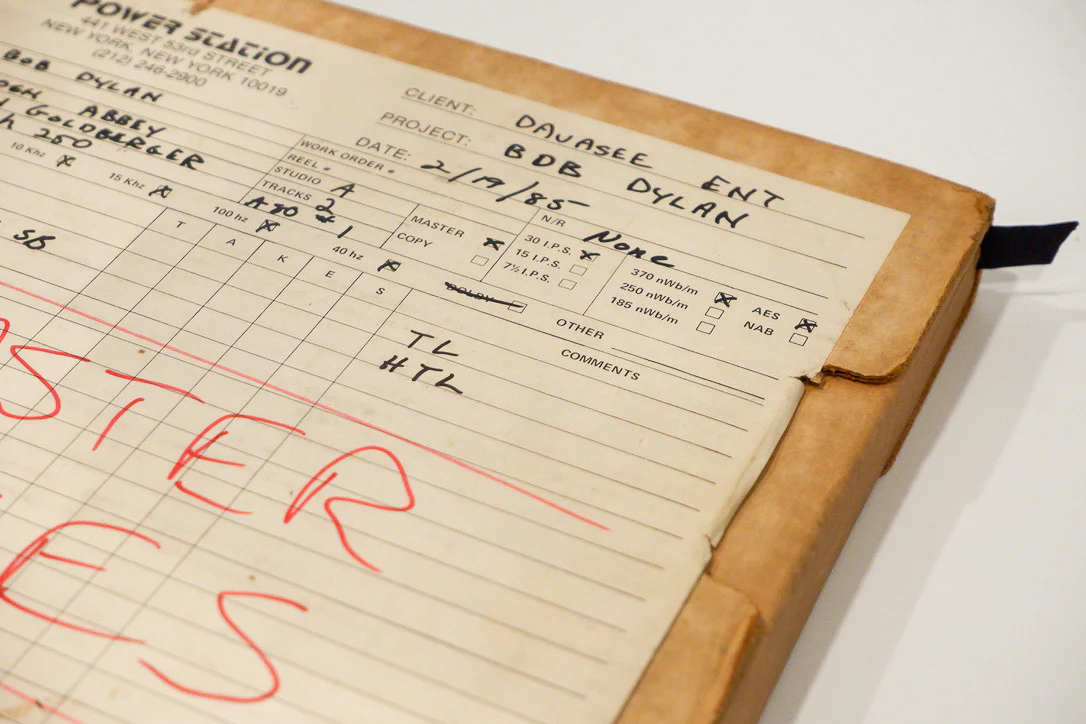 POWER STATION
441 WEST 53rd STREET
NEW YORK, NEW YORK 10019
(212) 246-2900
BOB DYLAN
ABBEY
GOLDBERGER
250
10 Khz
15 Khz
100 hz
40 hz
SB
CLIENT: DAVASEE ENT
PROJECT: BOB DYLAN
DATE: 2/19/85
WORK ORDER
REEL
STUDIO A
TRACKS 2
A80 #1
MASTER
COPY
N/R None
30 I.P.S.
15 I.P.S.
7½ I.P.S.
370 nWb/m
250 nWb/m
185 nWb/m
AES
NAB
DOLBY
OTHER
T A K E S
COMMENTS
TL
HTL
STER
ES